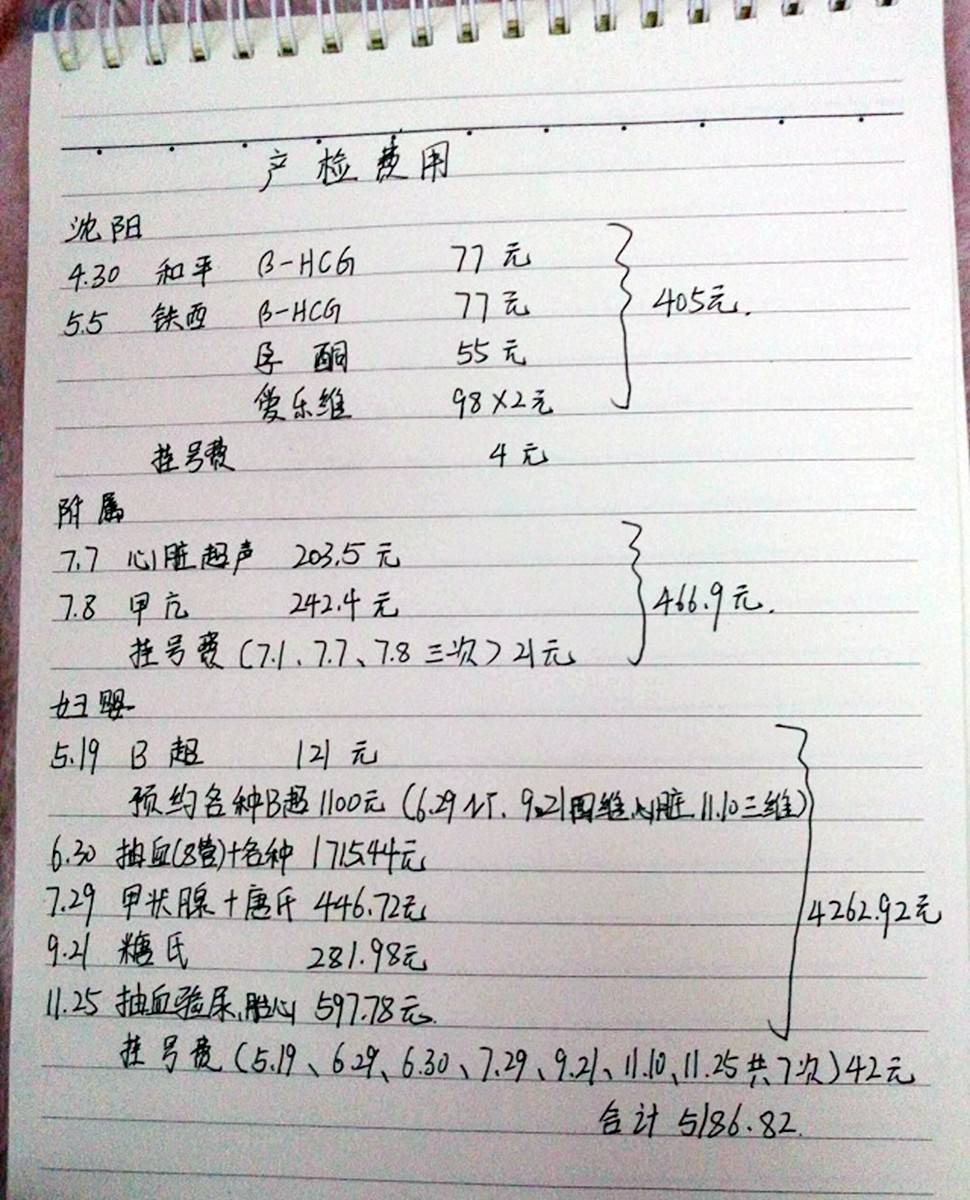 产检费用
沈阳
4.30 和平 β-HCG 77元
5.5 铁西 β-HCG 77元
405元.
孕酮 55元
爱乐维 98×2元
挂号费 4元
附属
7.7 心脏超声 203.5元
7.8 甲亢 242.4元
466.9元.
挂号费(7.1、7.7、7.8三次)21元
妇婴
5.19 B超 121元
预约各种B超1100元(6.29 NT、9.21四维,心脏,11.10三维)
6.30 抽血(8管)+各种 1715.44元
7.29 甲状腺+唐氏 446.72元
4262.92元
9.21 糖氏 281.98元
11.25 抽血验尿,胎心 597.78元.
挂号费(5.19、6.29、6.30、7.29、9.21、11.10、11.25共7次)42元
合计 5186.82.